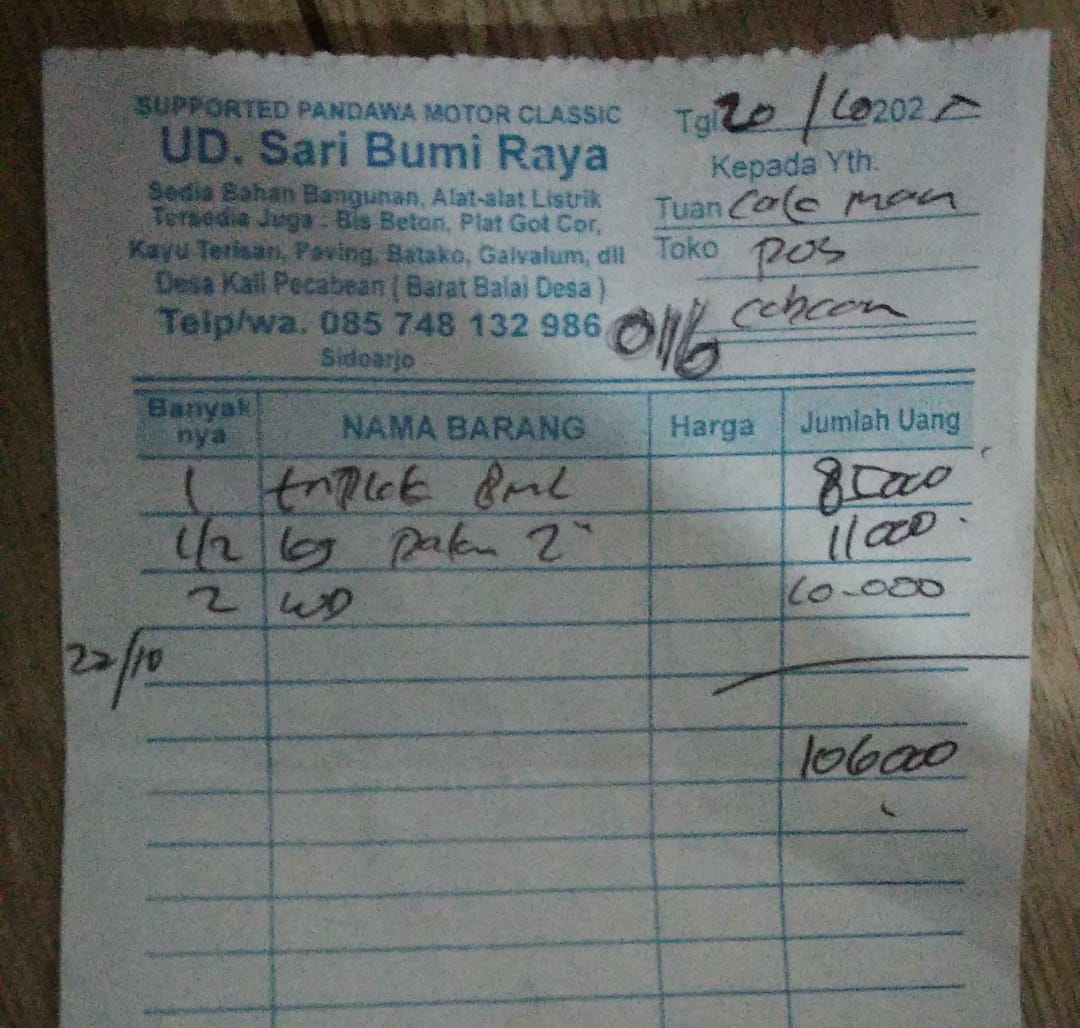 SUPPORTED PANDAWA MOTOR CLASSIC
UD. Sari Bumi Raya
Sedia Bahan Bangunan, Alat-alat Listrik
Tersedia Juga : Bis Beton, Plat Got Cor,
Kayu Terisan, Paving, Batako, Galvalum, dll
Desa Kali Pecabean ( Barat Balai Desa )
Telp/wa. 085 748 132 986
Sidoarjo
Tgl 20/10 202
Kepada Yth.
Tuan
Toko pos
0116
Banyak nya NAMA BARANG Harga Jumlah Uang
1 triplek 8ml 85000
1/2 kg paku 2" 11000
2 WD 10.000
22/10
106000